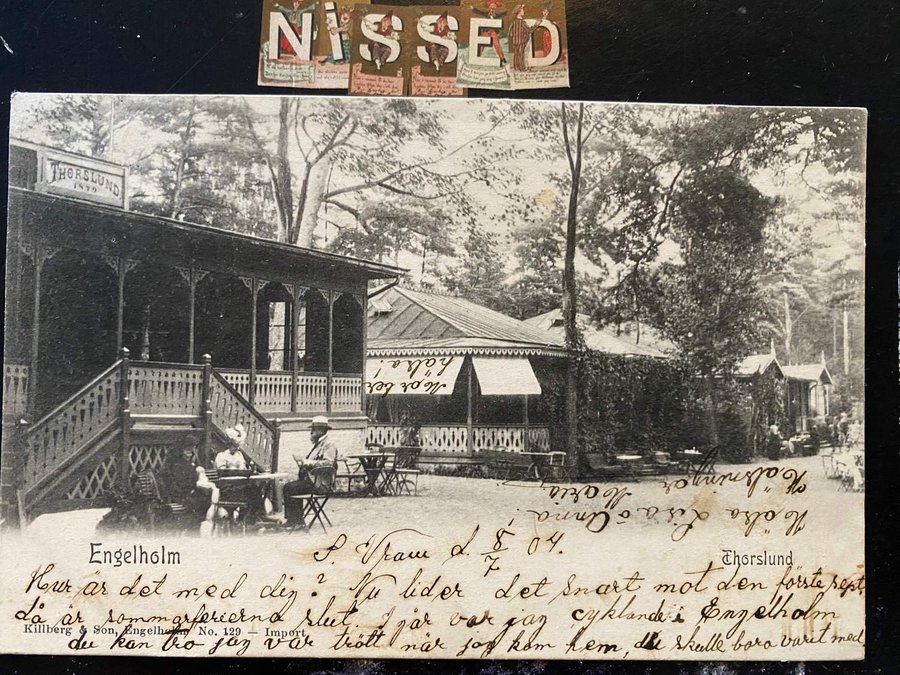 NiSSED
THORSLUND
1899
Mor ber
hälsa!
Engelholm
S. Vram d. 8/7 04.
Thorslund
Hur är det med dig? Nu lider det snart mot den förste sept.
då är sommarferierna slut. I går var jag cyklande i Engelholm
Killberg & Son, Engelholm No. 129 — Import.
du kan tro jag var trött när jag kom hem, du skulle bara varit med
Hälsningar Maria
Hälsa Lisa o Anna!